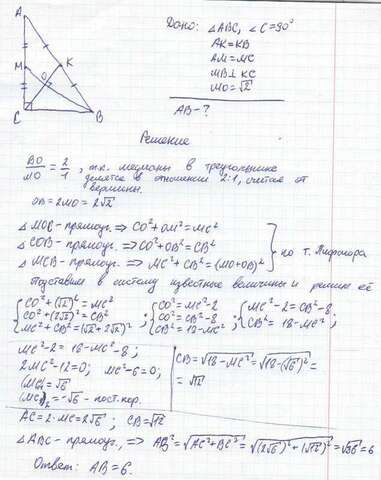 A
M
K
O
C
B
Дано: △ABC, ∠C=90°
AK=KB
AM=MC
MB⊥KC
MO=√2
AB-?
Решение
BO/MO = 2/1, т.к. медианы в треугольнике
делятся в отношении 2:1, считая от
вершины.
OB=2MO=2√2
△MOC-прямоуг. ⇒ CO²+OM²=MC²
△COB-прямоуг. ⇒ CO²+OB²=CB²
△MCB-прямоуг. ⇒ MC²+CB²=(MO+OB)²
по т. Пифагора
Подставим в систему известные величины и решим её
CO²+(√2)²=MC² ; CO²=MC²-2 ; MC²-2=CB²-8
CO²+(2√2)²=CB² ; CO²=CB²-8 ; CB²=18-MC² ;
MC²+CB²=(√2+2√2)² ; CB²=18-MC²
MC²-2=18-MC²-8;
2MC²-12=0; MC²-6=0;
(MC)₁=√6
(MC)₂=-√6 - пост. кор.
CB=√18-MC²=√18-(√6)²=
=√12
AC=2·MC=2√6 ; CB=√12
△ABC-прямоуг., ⇒ AB²=√AC²+BC²=√(2√6)²+(√12)²=√36=6
Ответ: AB=6.